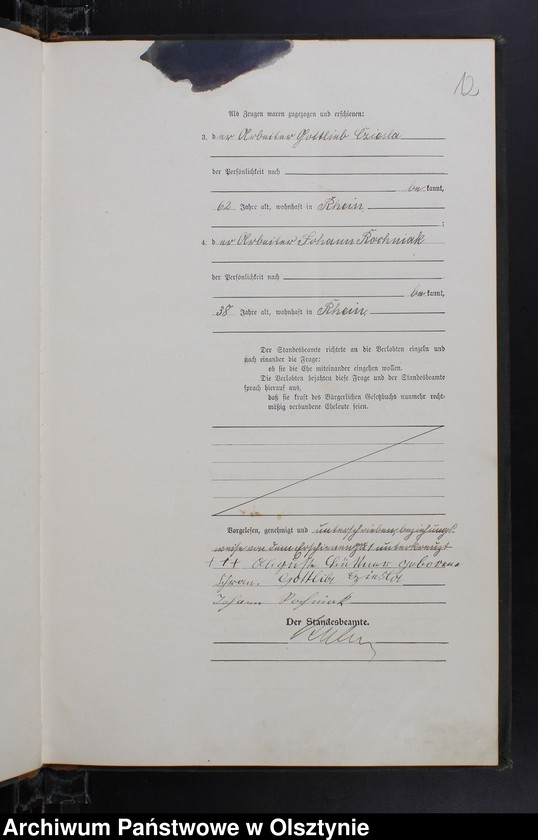 12
Als Zeugen waren zugezogen und erschienen:
3. der Arbeiter Gottlieb Cziesla
der Persönlichkeit nach
be kannt,
62 Jahre alt, wohnhaft in Rhein
;
4. der Arbeiter Johann Kochniak
der Persönlichkeit nach
be kannt,
38 Jahre alt, wohnhaft in Rhein
Der Standesbeamte richtete an die Verlobten einzeln und
nach einander die Frage:
ob sie die Ehe miteinander eingehen wollen.
Die Verlobten bejahten diese Frage und der Standesbeamte
sprach hierauf aus,
daß sie kraft des Bürgerlichen Gesetzbuchs nunmehr recht-
mäßig verbundene Eheleute seien.
Vorgelesen, genehmigt und unterschrieben, beziehungs-
weise von dem unterkreuzt
+++ Auguste geborene
Gottlib Cziesla
Johann
Der Standesbeamte.
Archiwum Państwowe w Olsztynie